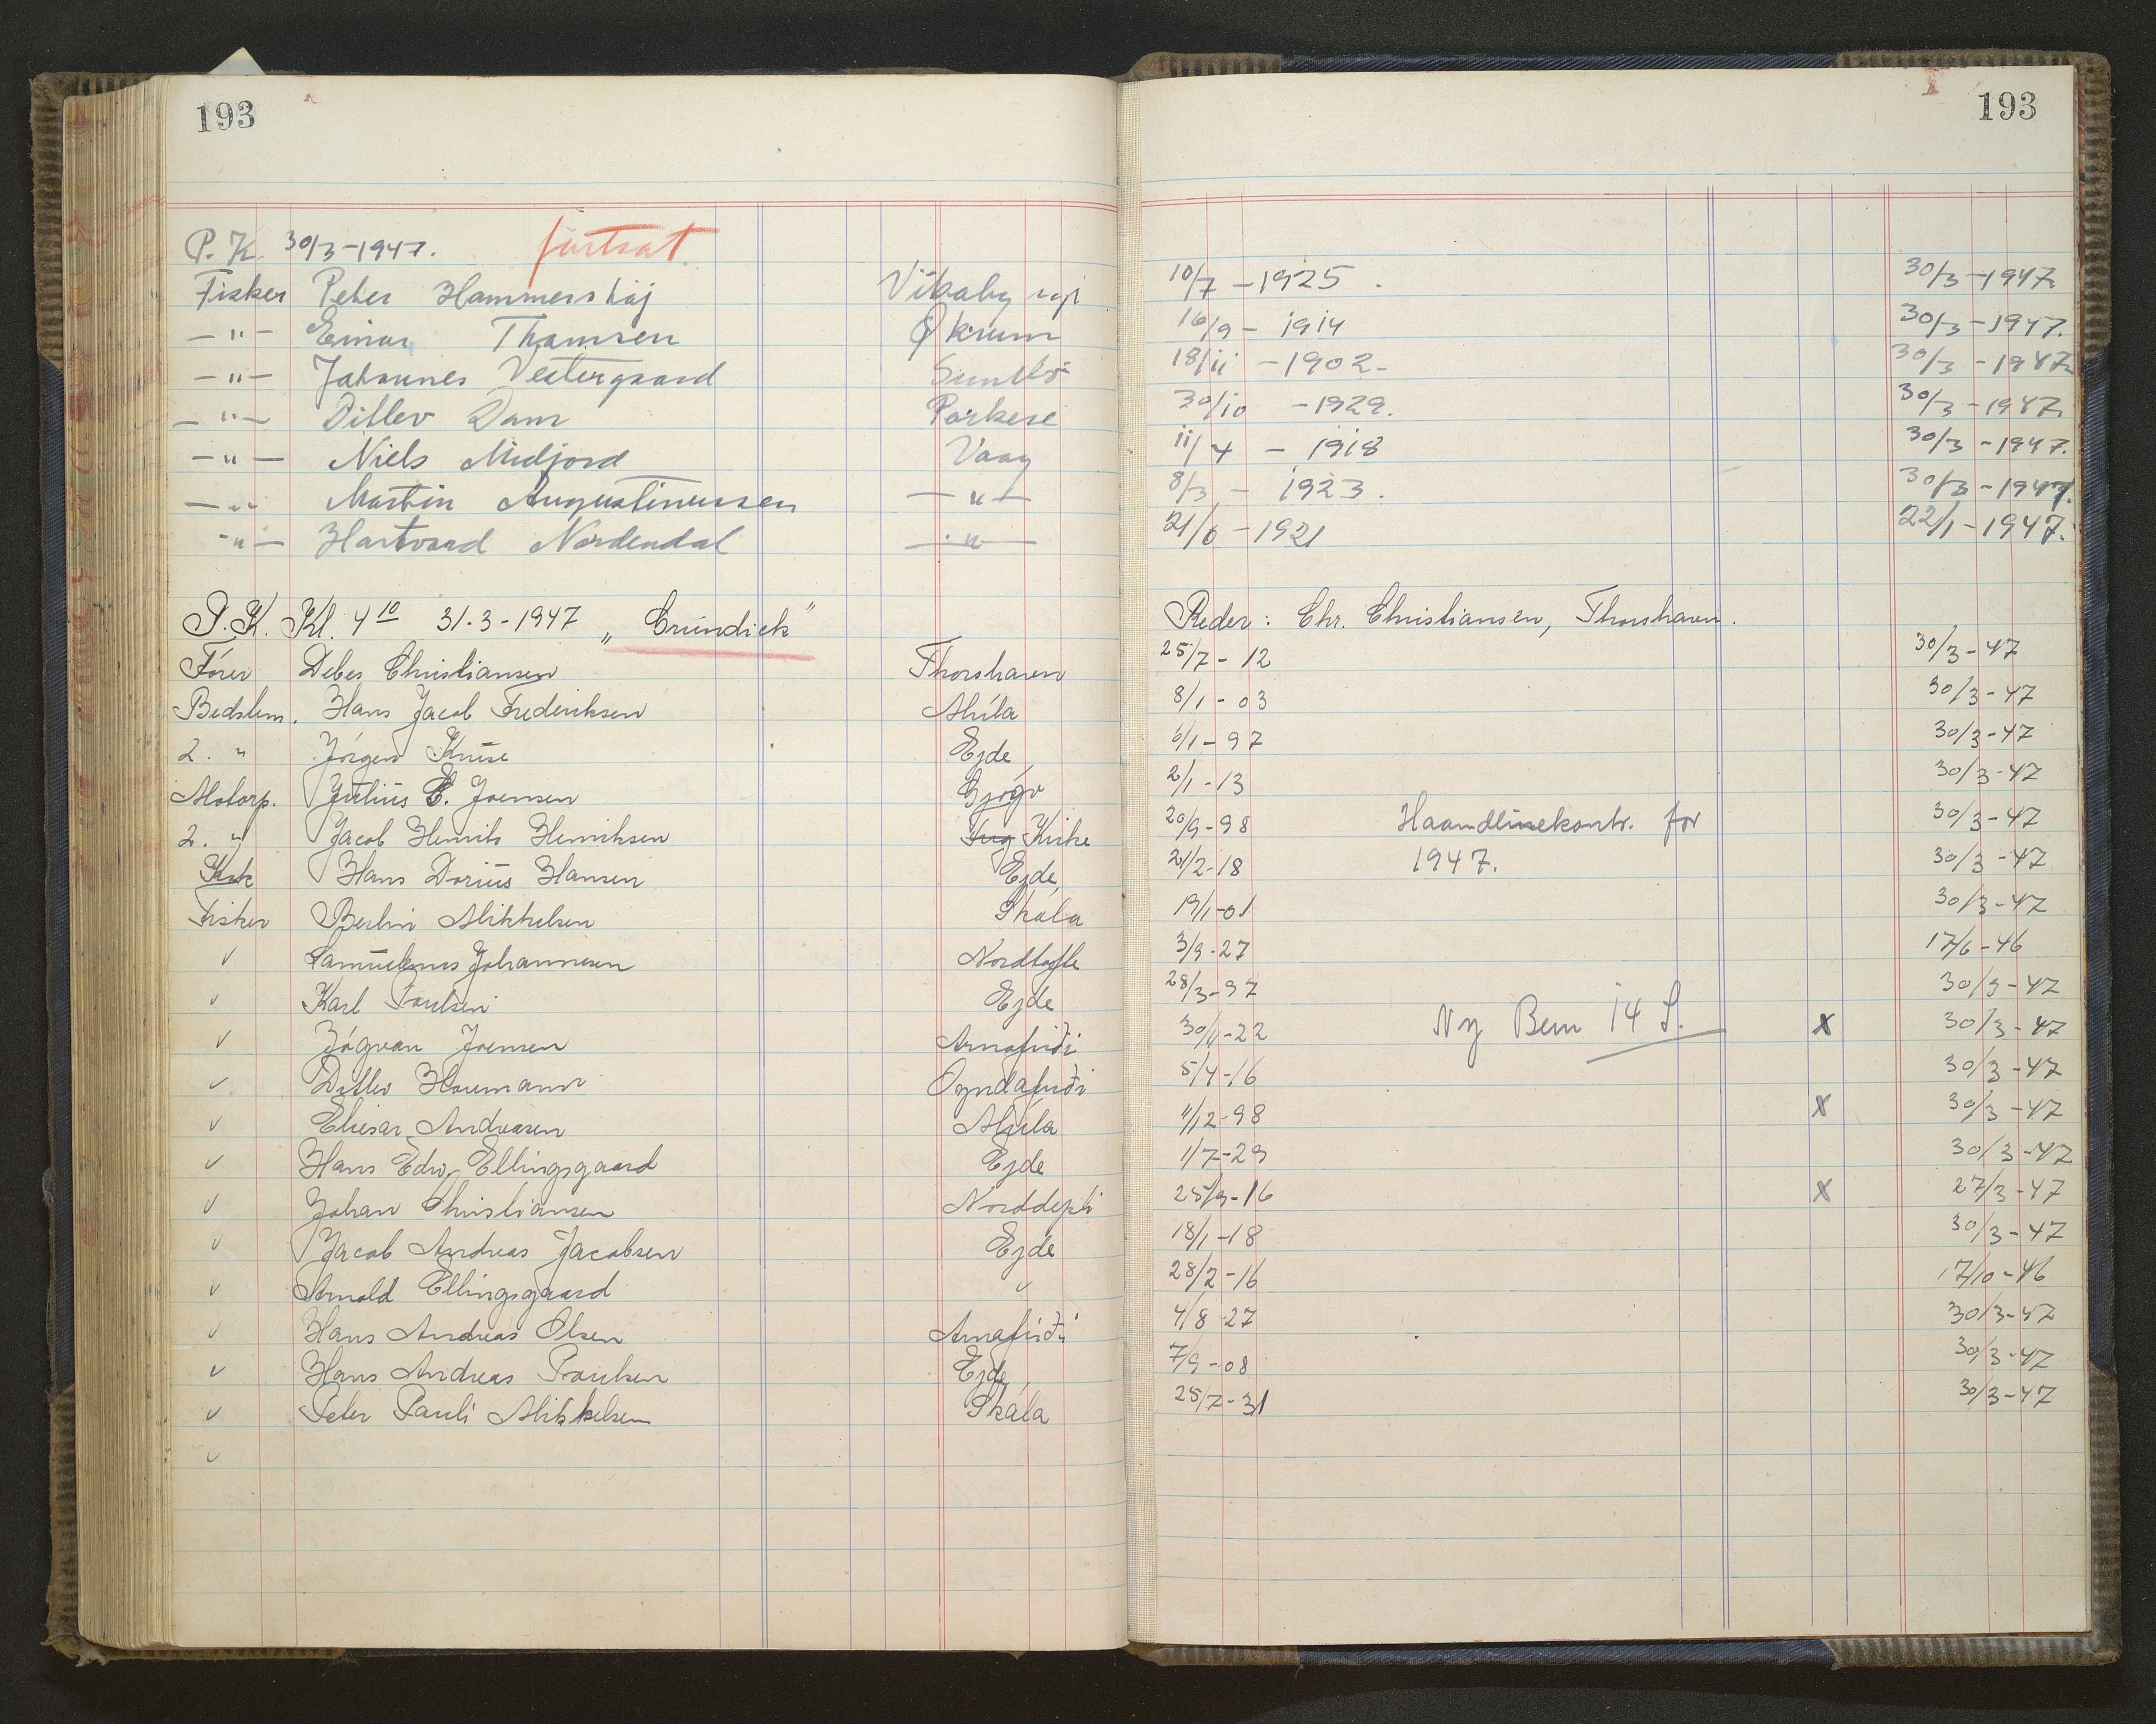 193 193
P. K. 30/3-1947. fortsat
Fisker Peter Hammershaj 10/7 -1925 . 30/3-1947.
-"- Einar Thomsen Økrum 16/9 - 1914 30/3-1947.
-"- Johannes Vestergaard Sumbö 18/11 -1902- 30/3-1947.
-"- Ditlev Dam Porkere 30/10 -1929. 30/3-1947.
-"- Niels Midjord Vaag 11/4 - 1918 30/3-1947.
-"- Martin Augustinussen -"- 8/3 - 1923. 30/3-1947.
-"- Hartvard Nordendal -"- 21/6 -1921 22/1-1947.
P.K. Kl. 4 10 31-3-1947 „Grundick" Reder: Chr. Christiansen, Thorshavn.
Fører Debes Christiansen Thorshavn 25/7 - 12 30/3-47
Bedstem. Hans Jacob Frederiksen Múla 8/1 - 03 30/3-47
2. " Jørgen Kruse Ejde 6/1 - 97 30/3-47
Motorp. Julius E. Joensen Gjógv 2/1 -13 30/3-47
2. " Jacob Henrik Henriksen Kirke 20/9-98 Haandlinekontr. for 30/3-47
Kok Hans Dorius Hansen Ejde 21/2-18 1947. 30/3-47
Fisker Berlin Mikkelsen Skála 19/1-01 30/3-47
v Johannesen Nordtofte 3/9-27 17/6-46
v Karl Poulsen Ejde 28/3-97 30/3-47
v Jógvan Joensen Arnafirði 30/11-22 Ny Bem 14 S. x 30/3-47
v Ditlev Houmann Oyndafirði 5/4-16 30/3-47
v Eliesar Andreasen Múla 11/12-98 x 30/3-47
v Hans Edv. Ellingsgaard Ejde 1/7-29 30/3-47
v Johan Christiansen Norddepli 25/9-16 x 27/3-47
v Jacob Andreas Jacobsen Ejde 18/1-18 30/3-47
v Arnold Ellingsgaard v 28/2-16 17/10-46
v Hans Andreas Olsen Arnafirði 4/8-27 30/3-47
v Hans Andreas Poulsen Ejde 7/9-08 30/3-47
v Peter Pauli Mikkelsen Skála 25/7-31 30/3-47
v